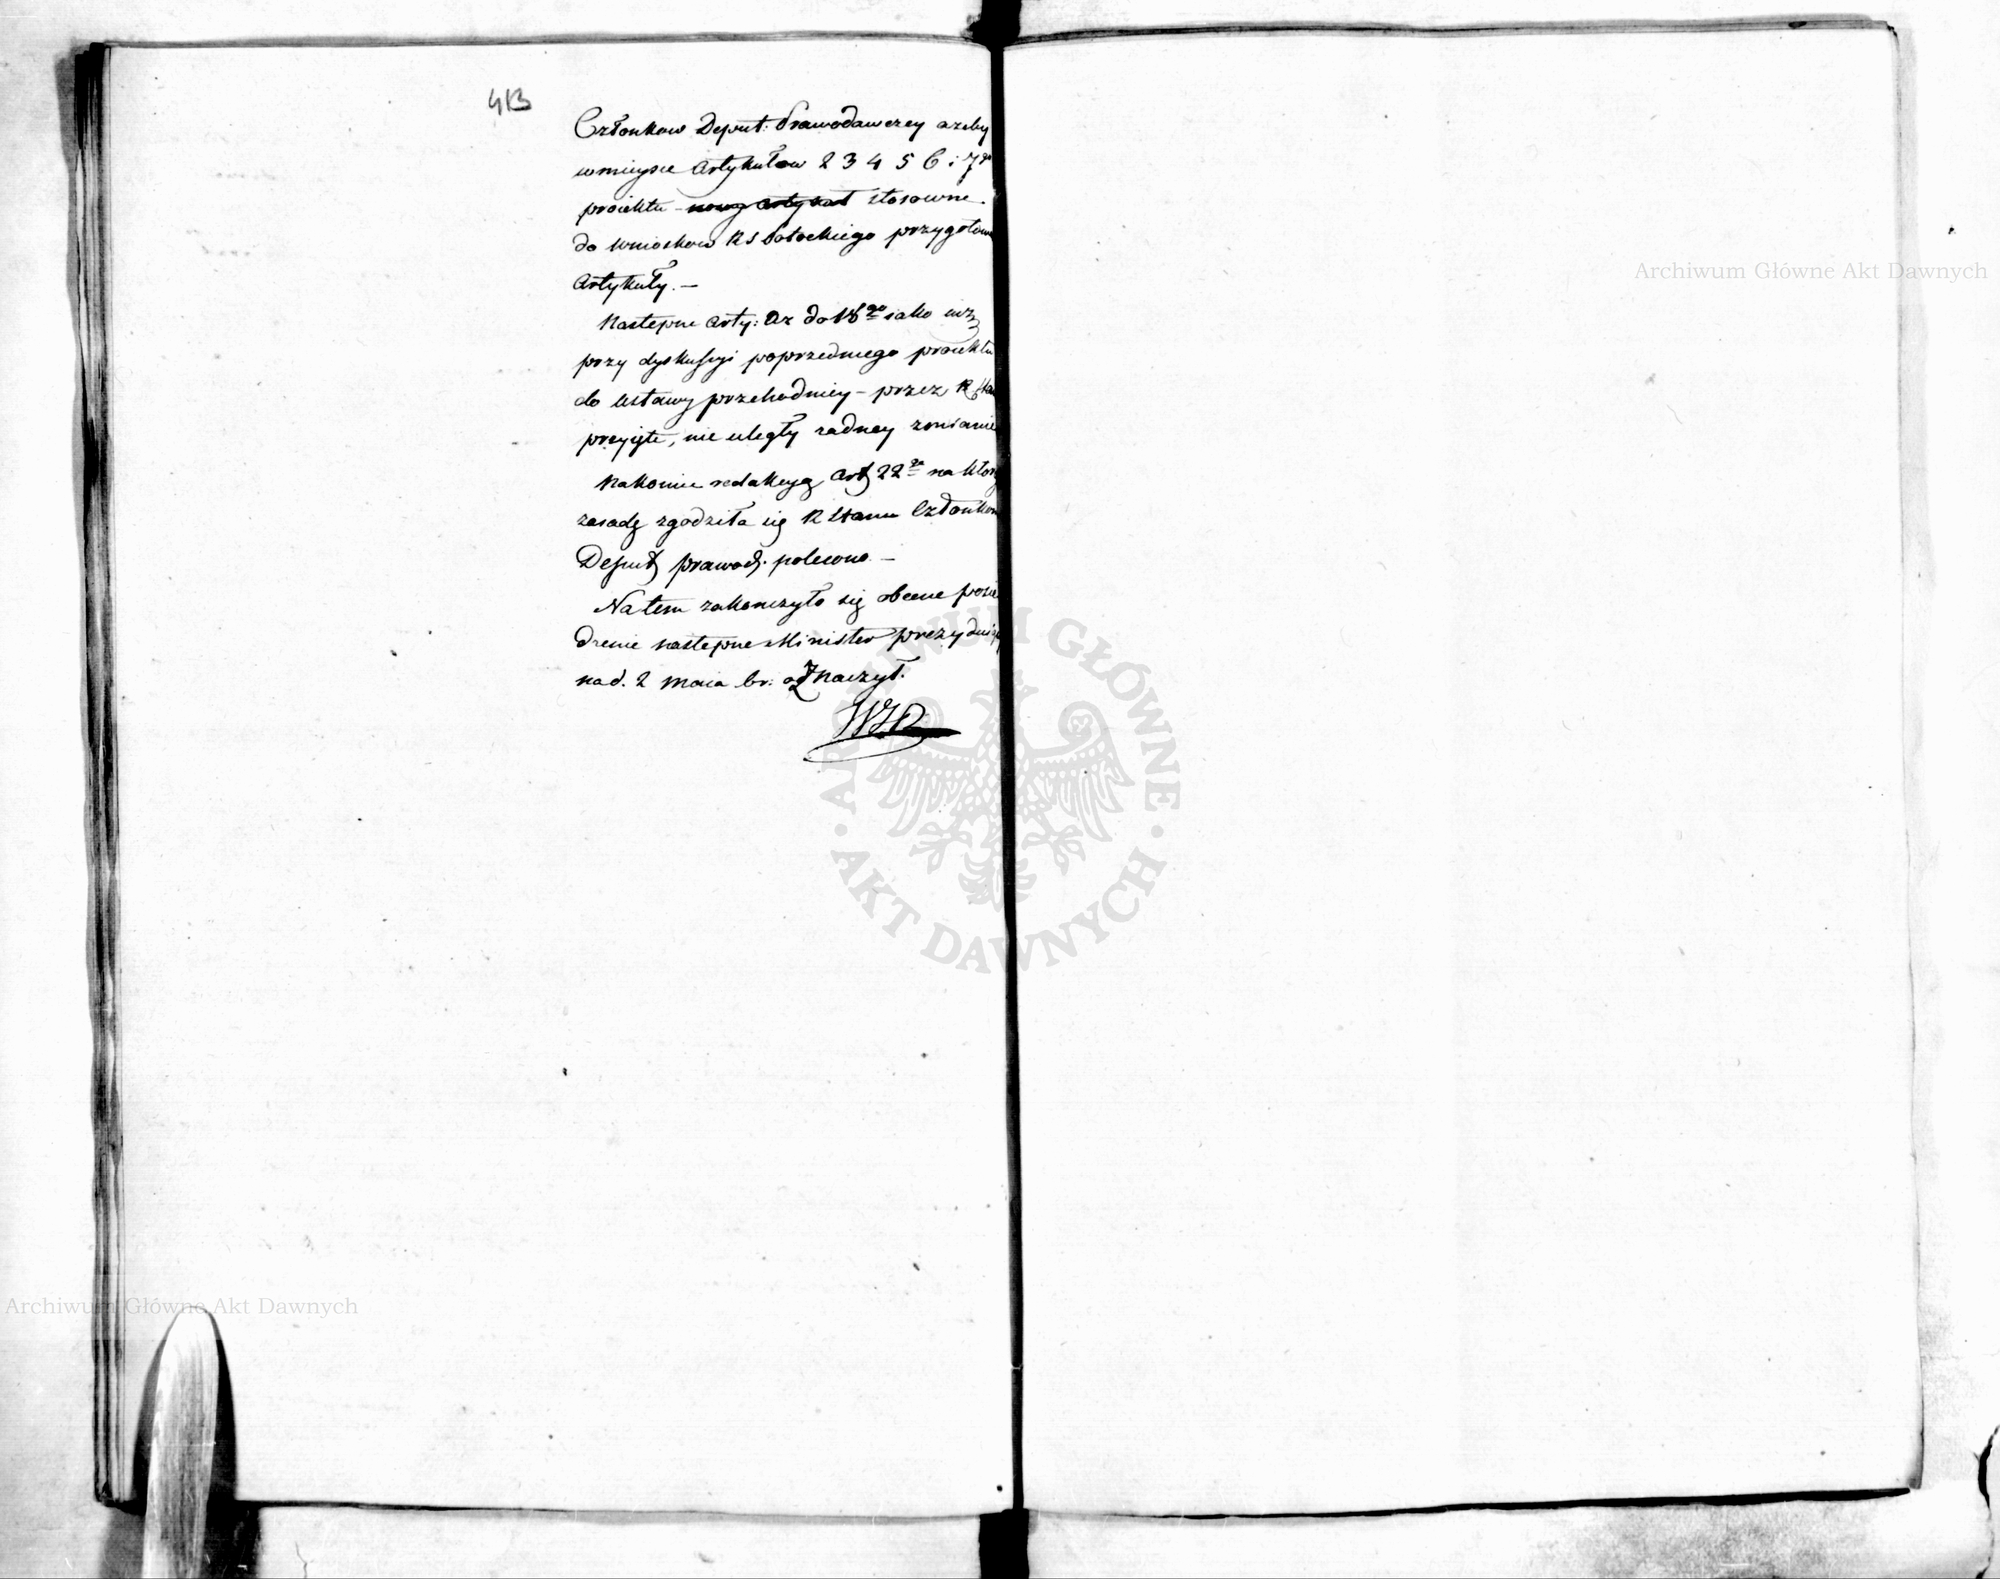 413
Członkow Deput: Prawodawczey azeby
w mieysce Artykułow 2 3 4 5 6 i 7go
proiektu – nowy artykuł stosowne
do wnioskow RS Potockiego przygotow
Artykuły. –
Następne Arty: az do 18go iako iuz
przy dyskussyi poprzedniego proiektu
do Ustawy przechodniey – przez R Stan
przyięte, nie uległy zadney zmianie
Nakoniec redakcyą Art 22go na ktorego
zasadę zgodziła się R Stanu Członkom
Deput prawod. polecono. –
Na tem zakonczyło się obecne posie
dzenie następne Minister prezyduiący
na d. 2 Maia br: oznaczył.
Archiwum Główne Akt Dawnych
Archiwum Główne Akt Dawnych
ARCHIWUM GŁÓWNE • AKT DAWNYCH •